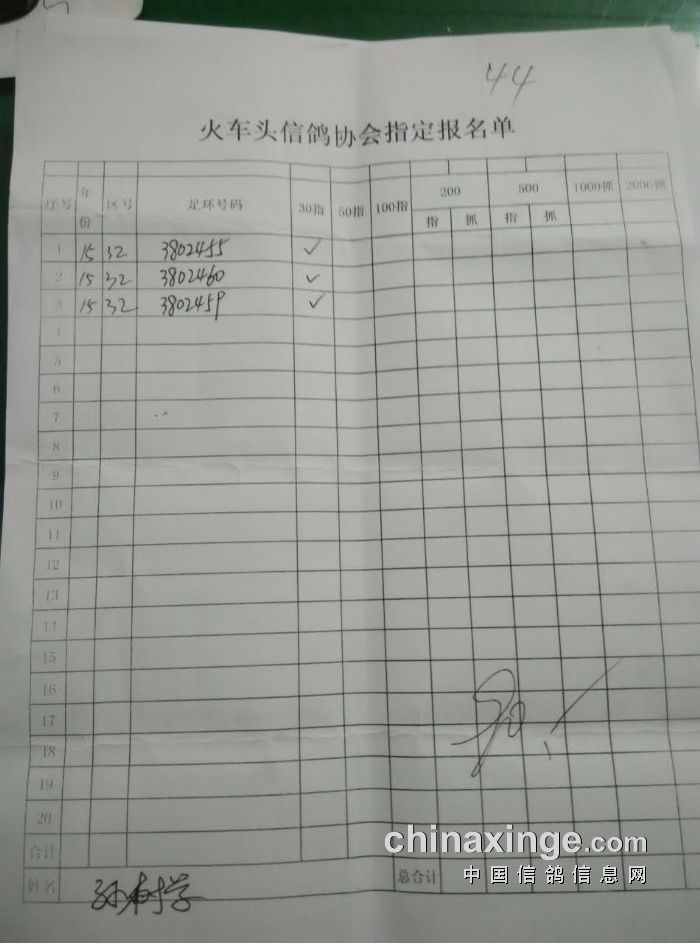 44
火车头信鸽协会指定报名单
序号 年份 区号 足环号码 30指 50指 100指 200 500 1000抓 2000抓
指 抓 指 抓
1 15 32 3802455 ✓
2 15 32 3802460 ✓
3 15 32 3802459 ✓
4
5
6
7
8
9
10
11
12
13
14
15
16
17
18
19
20
合计
姓名 孙树学 总合计
90.
chinaxinge.com
中国信鸽信息网